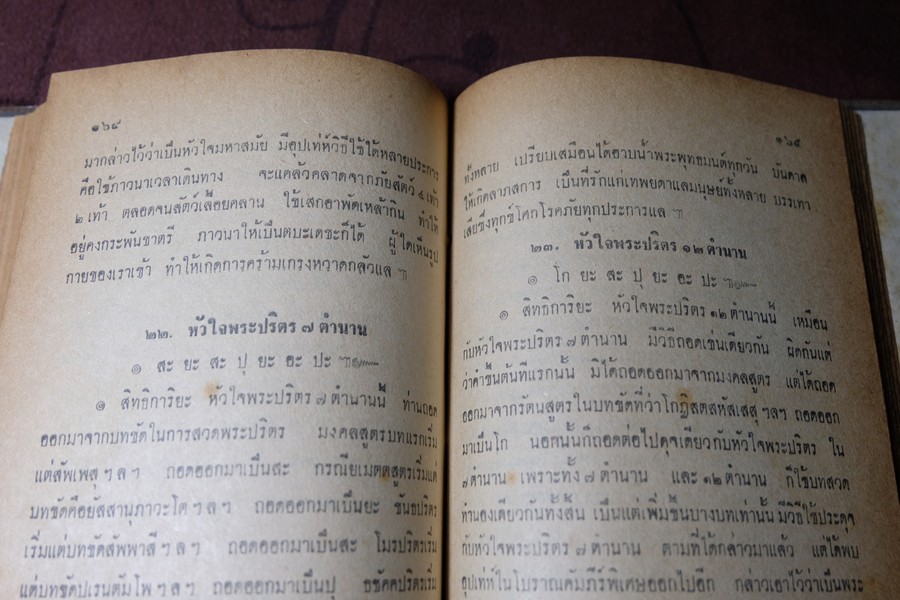 ๑๖๔
มากล่าวไว้ว่าเป็นหัวใจมหาสมัย มีอุปเท่ห์วิธีใช้ได้หลายประการ
คือใช้ภาวนาเวลาเดินทาง จะแคล้วคลาดจากภัยสัตว์ ๔ เท้า
๒ เท้า ตลอดจนสัตว์เลื้อยคลาน ใช้เสกอาพัดเหล้ากิน ทำให้
อยู่คงกระพันชาตรี ภาวนาให้เป็นตบะเดชะก็ได้ ผู้ใดเห็นรูป
กายของเราเข้า ทำให้เกิดการคร้ามเกรงหวาดกลัวแล ฯ
๒๒. หัวใจพระปริตร ๗ ตำนาน
๑ สะ ยะ สะ ปุ ยะ อะ ปะ ฯ๛
๏ สิทธิการิยะ หัวใจพระปริตร ๗ ตำนานนี้ ท่านถอด
ออกมาจากบทขัดในการสวดพระปริตร มงคลสูตรบทแรกเริ่ม
แต่สัพเพสุ ฯ ล ฯ ถอดออกมาเป็นสะ กรณียเมตตสูตรเริ่มแต่
บทขัดคือยัสสานุภาวะโต ฯ ล ฯ ถอดออกมาเป็นยะ ขันธปริตร
เริ่มแต่บทขัดสัพพาสี ฯ ล ฯ ถอดออกมาเป็นสะ โมรปริตรเริ่ม
แต่บทขัดปุเรนตัมโพ ฯ ล ฯ ถอดออกมาเป็นปุ ธชัคคปริตรเริ่ม
๑๖๕
ทั้งหลาย เปรียบเสมือนได้อาบน้ำพระพุทธมนต์ทุกวัน บันดาล
ให้เกิดลาภสการ เป็นที่รักแก่เทพยดาแลมนุษย์ทั้งหลาย บรรเทา
เสียซึ่งทุกข์โศกโรคภัยทุกประการแล ฯ
๒๓. หัวใจพระปริตร ๑๒ ตำนาน
๑ โก ยะ สะ ปุ ยะ อะ ปะ ฯ๛
๏ สิทธิการิยะ หัวใจพระปริตร ๑๒ ตำนานนี้ เหมือน
กับหัวใจพระปริตร ๗ ตำนาน มีวิธีถอดเช่นเดียวกัน ผิดกันแต่
ว่าคำขึ้นต้นทีแรกนั้น มิได้ถอดออกมาจากมงคลสูตร แต่ได้ถอด
ออกมาจากรัตนสูตรในบทขัดที่ว่าโกฏิสตสหัสเสสุ ฯลฯ ถอดออก
มาเป็นโก นอกนั้นก็ถอดต่อไปดุจเดียวกับหัวใจพระปริตร ใน
๗ ตำนาน เพราะทั้ง ๗ ตำนาน และ ๑๒ ตำนาน ก็ใช้บทสวด
ทำนองเดียวกันทั้งสิ้น เป็นแต่เพิ่มขึ้นบางบทเท่านั้น มีวิธีใช้ประดุจ
กับหัวใจพระปริตร ๗ ตำนาน ตามที่ได้กล่าวมาแล้ว แต่ได้พบ
อุปเท่ห์ในโบราณคัมภีร์พิเศษออกไปอีก กล่าวเอาไว้ว่าเป็นพระ